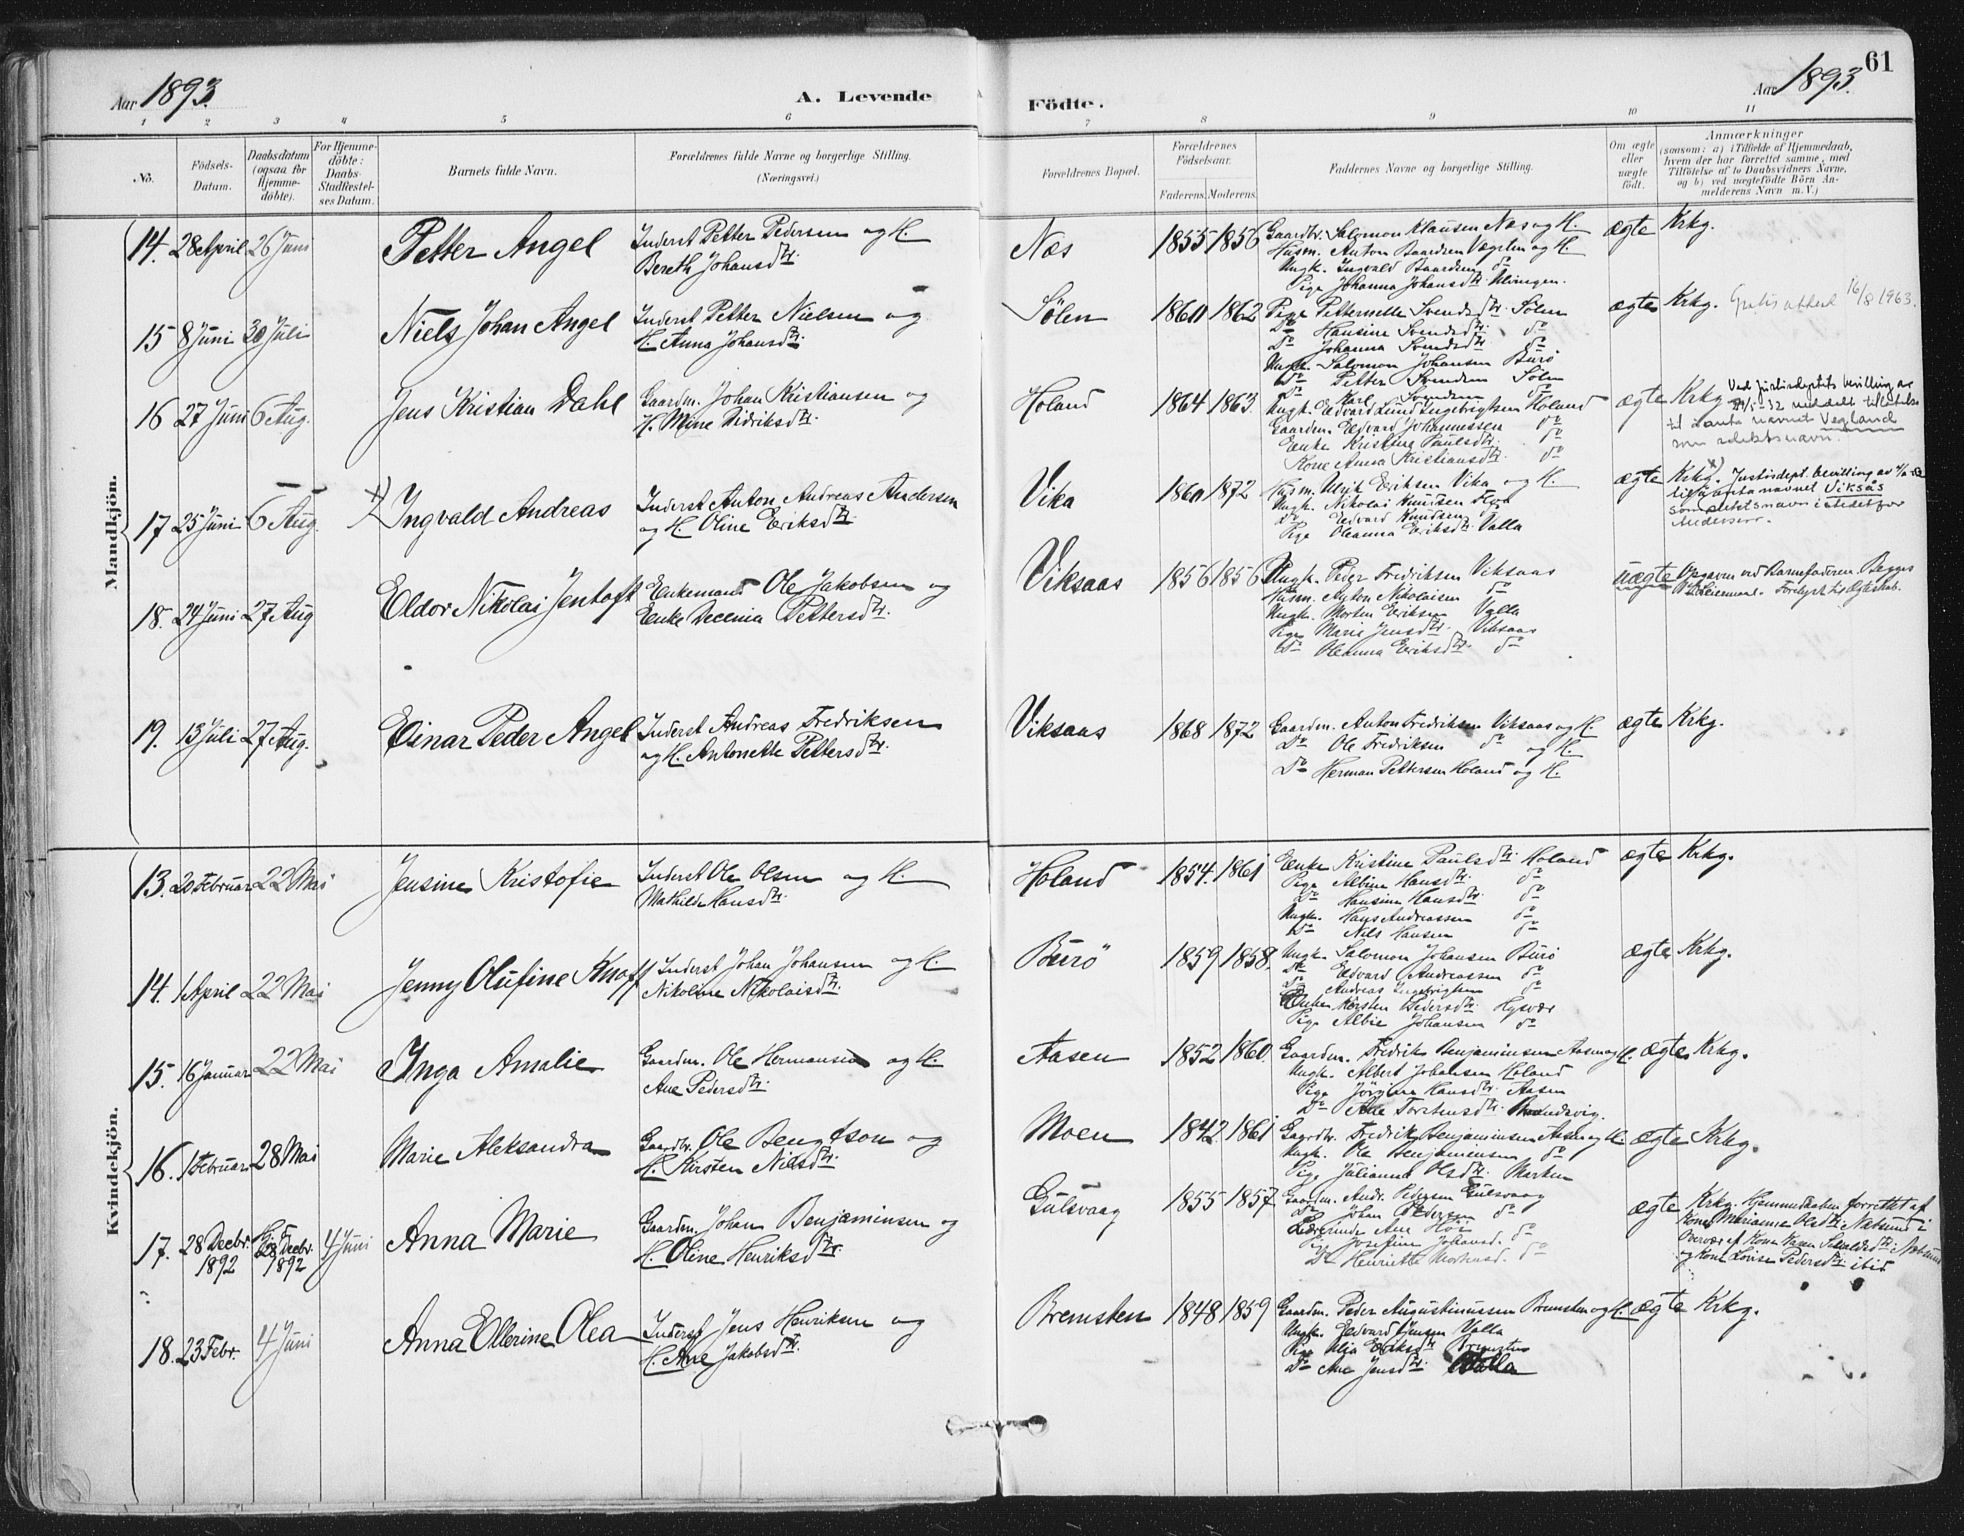 Aar 1893.
A. Levende
Födte.
Aar 1893.
61
1 2 3 4 5 6 7 8 9 10 11
No.
Födsels-
Datum.
Daabsdatum
(ogsaa for
Hjemme-
döbte).
For Hjemme-
döbte:
Daabs-
Stadfæstel-
ses Datum.
Barnets fulde Navn.
Forældrenes fulde Navne og borgerlige Stilling.
(Næringsvei.)
Forældrenes Bopæl.
Forældrenes
Födselsaar.
Faderens. Moderens.
Faddernes Navne og borgerlige Stilling.
Om ægte
eller
uægte
födt.
Anmærkninger
(saasom: a) i Tilfælde af Hjemmedaab,
hvem der har forrettet samme, med
Tilföielse af to Daabsvidners Navne,
og b) ved uægtefödte Börn An-
melderens Navn m. V.)
Mandkjön.
14. 28 April 26 Juni
Petter Angel
Inderst Petter Pedersen og H.
Bereth Johansdtr.
Næs
1855 1856
Gaardbr. Salomon Klausen Næs og H.
Husm. Anton Baardsen Vægsten og H
Ungk. Ingvald Baardsen do
Pige Johanna Johansdtr.
ægte
Krkg.
15 8 Juni 30 Juli
Niels Johan Angel
Inderst Petter Nielsen og
H. Anna Johansdtr.
Sølen
1860 1862
Pige Petternelle Svendsdtr. Sølen
Do Hansine Svendsdtr. do
Do Johanna Svendsdtr. do
Ungk. Salomon Johansen Burö
Do Petter Svendsen Sölen
Do Karl Svendsen do
ægte
Krkg. 16/8 1963.
16 27 Juni 6 Aug.
Jens Kristian Dahl
Gaardm. Johan Kristiansen og
H. Mine Didriksdtr.
Holand
1864 1863.
Ungk. Edvard Lund Ingebrigtsen Holand
Gaardm. Edvard Johannessen do
Enke Kristine Paulsdtr. do
Kone Anna Kristiansdtr. do
ægte
Krkg. Ved Justisdeptets bevilling av
meddelt tillatelse
til å anta navnet Vegland
som slektsnavn.
17 25 Juni 6 Aug.
x) Ingvald Andreas
Inderst Anton Andreas Andersen
og H. Oline Eriksdtr.
Vika
1860 1872
Husm. Ulrik Eriksen Vika og H.
Ungk. Nikolai Knudsen
Do Edvard Knudsen
Pige Oleanna Eriksdtr. Valla
ægte
Krkg. x) Justisdept. bevilling av
til å anta navnet Viksås
som slektsnavn istedetfor
Andersen.
18. 24 Juni 27 Aug
Eldor Nikolai Jentoft
Enkemand Ole Jakobsen og
Enke Decenia Pettersdtr.
Viksaas
1856 1856
Ungk. Peder Fredriksen Viksaas
Husm. Anton Nikolaisen do
Ungk. Morten Eriksen Valla
Pige Marie Jensdtr. Viksaas
Do Oleanna Eriksdtr. do
uægte
Opgaven ved Barnefaderen. Begges
Leiermaal. Forlovet til Ægteskab.
19. 13 Juli 27 Aug.
Einar Peder Angel
Inderst Andreas Fredriksen
og H. Antonette Pettersdtr.
Viksaas
1868 1872
Gaardm. Anton Fredriksen Viksaas og H.
Do Ole Fredriksen do og H.
Do Herman Pettersen Holand og H.
ægte
Krkg.
Kvindekjön.
13. 20 Februar 22 Mai
Jensine Kristofie
Inderst Ole Olsen og H.
Mathilde Hansdtr.
Holand
1854. 1861
Enke Kristine Paulsdtr. Holand
Pige Albine Hansdtr. do
Do Hansine Hansdtr. do
Ungk. Hans Andreassen do
Do Nils Hansen do
ægte
Krkg.
14. 1 April 22 Mai
Jenny Olufine Knoff
Inderst Johan Johansen og H.
Nikoline Nikolaisdtr.
Burö
1859 1858.
Ungk. Salomon Johansen Burö
Do Edvard Andreassen do
Do Andreas Ingebrigtsen do
Enke Kirsten Pedersdtr. Hysvær
Pige Albie Johansen do
ægte
Krkg.
15. 16 Januar 22 Mai
Inga Amalie
Gaardm. Ole Hermansen og H.
Ane Pedersdtr.
Aasen
1852 1860.
Gaardm. Fredrik Benjaminsen Aasen og H.
Ungk. Albert Johansen Holand
Pige Jörgine Hansdtr. Aasen
Do Ane Torstensdtr. Brændsvig.
ægte
Krkg.
16. 1 Februar 28 Mai
Marie Aleksandra
Gaardbr. Ole Bengtson og
H. Kirsten Nilsdtr.
Moen
1842 1861
Gaardbr. Fredrik Benjaminsen Aasen og H.
Ungk. Ole Benjaminsen do
Pige Julianna Olsdtr. Marken
ægte
Krkg.
17. 28 Decbr. 1892
28 Decbr. 1892
4 Juni
Anna Marie
Gaardm. Johan Benjaminsen og
H. Oline Henriksdtr.
Gulsvaag
1855 1857.
Gaardm. Andr. Pedersen Gulsvaag
Do Johan Pedersen do
Ane do
Pige Josefine Johansd. do
Do Henriette do
ægte
Krkg. Hjemmedaaben forrettet af
Kone Marianne Olsdtr. Næsund i
Overvær af Kone Karen Sivaldsdtr. Næsund
og Kone Lovise Pedersdtr. ibid
18. 23 Febr. 4 Juni
Anna Ellerine Olea
Inderst Jens Henriksen og
H. Ane Jakobsdtr.
Bremsten
1848 1859
Gaardm. Peder Augustinussen Bremsten og H.
Ungk. Edvard Jensen Valla
Pige Eriksdtr. Bremsten
Do Ane Jensdtr. Valla
ægte
Krkg.